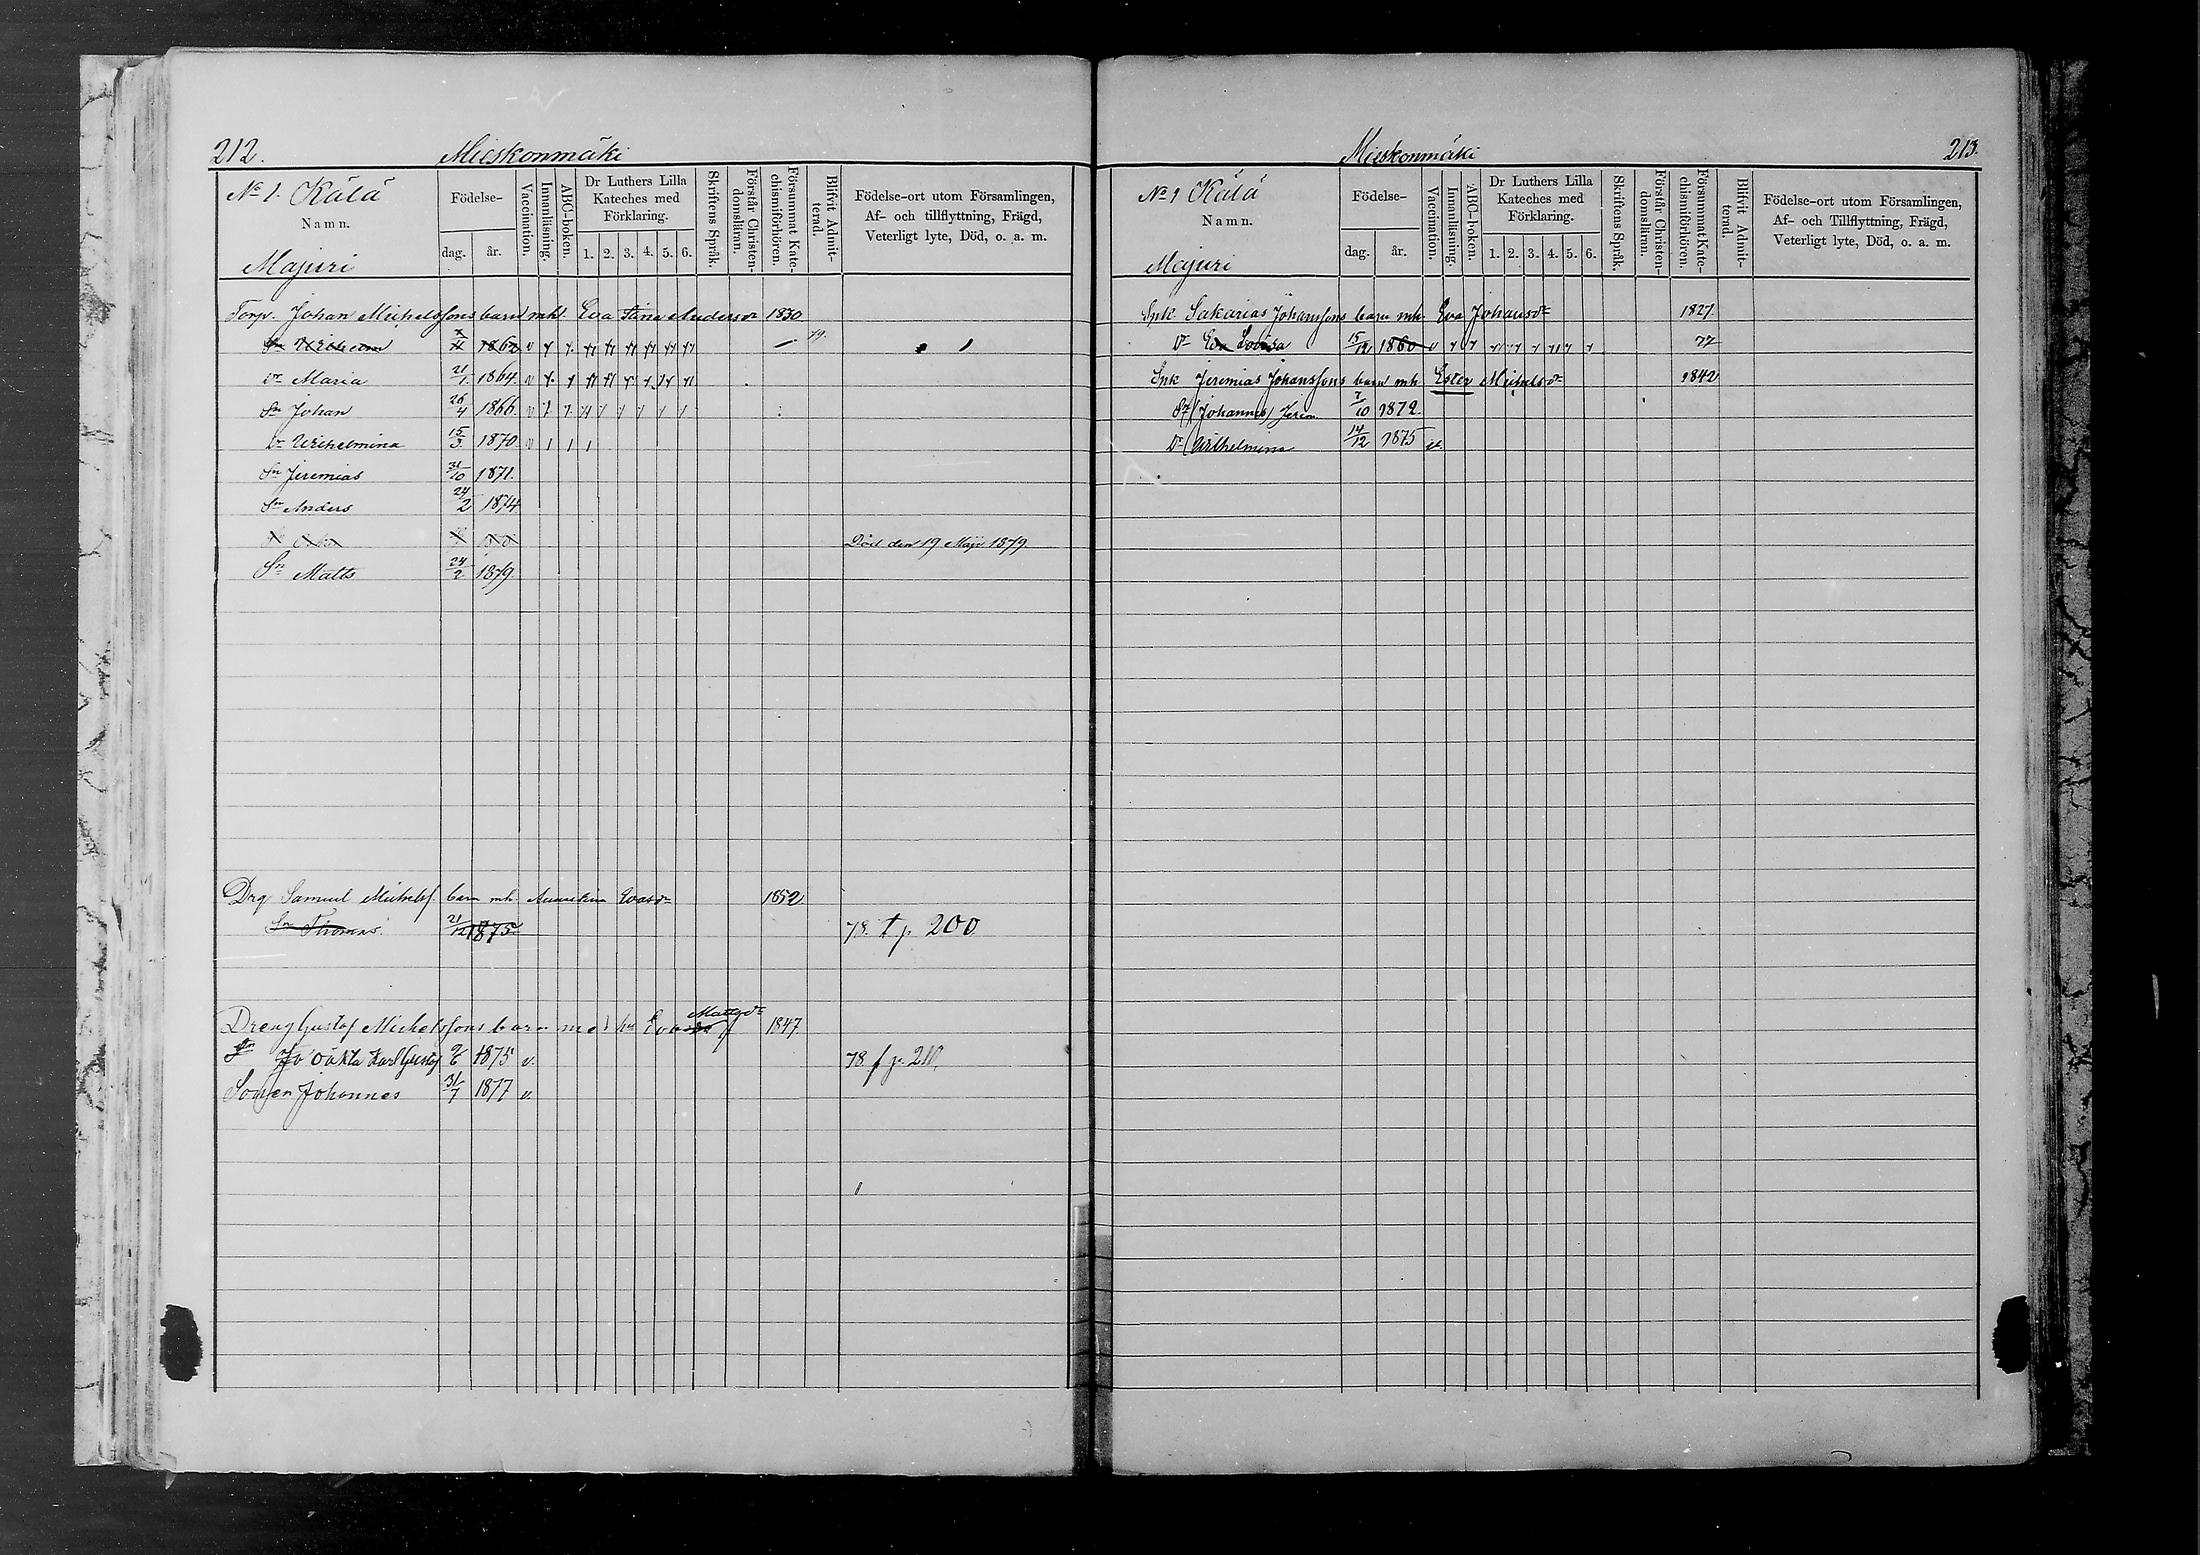 212.
Mieskonmäki
No 1. Kälä
Namn.
Majuri
Födelse-
dag.
år.
Vaccination.
Innanläsning.
ABC-boken.
Dr Luthers Lilla
Kateches med
Förklaring.
1. 2. 3. 4. 5. 6.
Skriftens Språk.
Förstår Christen-
domsläran.
Försummat Kate-
chismiförhören.
Blifvit Admit-
terad.
Födelse-ort utom Församlingen,
Af- och tillflyttning, Frägd,
Veterligt lyte, Död, o. a. m.
Torp. Johan Michelssons barn mh. Eva Stina Andersdr 1830
Sn Wilhelm 1862 v 79.
Dr Maria 21/1 1864 v
Sn Johan 26/4 1866 v
Dr Wilhelmina 15/3 1870 v
Sn Jeremias 31/10 1871.
Sn Anders 24/2 1874
Död den 19 Maji 1879.
Sn Matts 24/2 1879.
Drg Samuel Michelss. barn mh. Evasdr 1852
Sn Thomas. 21/12 1875 78. † p. 200
Dreng Gustaf Michelssons barn med hu Eva Mattsdr 1847
Sn oäkta Karl Gustaf 9/6 1875 v. 78 p. 210.
Sonen Johannes 31/7 1877 v.
Mieskonmäki
213.
No 1 Kälä
Namn.
Majuri
Födelse-
dag.
år.
Vaccination.
Innanläsning.
ABC-boken.
Dr Luthers Lilla
Kateches med
Förklaring.
1. 2. 3. 4. 5. 6.
Skriftens Språk.
Förstår Christen-
domsläran.
Försummat Kate-
chismiförhören.
Blifvit Admit-
terad.
Födelse-ort utom Församlingen,
Af- och Tillflyttning, Frägd,
Veterligt lyte, Död, o. a. m.
Spk Sakarias Johanssons barn mh Eva Johansdr 1827.
Dr Eva Lovisa 15/12 1860 v 77
Spk Jeremias Johanssons barn mh Ester Michelsdr 1842
Sn (Johannes) Jerem. 7/10 1872.
Dr (Wilhelmina 14/12 1875 v.